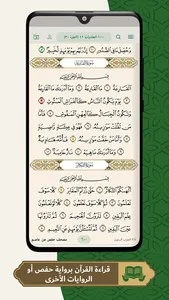 وَحُصِّلَ مَا فِي ٱلصُّدُورِ ١٠ إِنَّ رَبَّهُم بِهِمْ يَوْمَئِذٍ لَّخَبِيرٌ ١١
سورة القارعة
بسم الله الرحمن الرحيم
ٱلْقَارِعَةُ ١ مَا ٱلْقَارِعَةُ ٢ وَمَآ أَدْرَىٰكَ مَا ٱلْقَارِعَةُ ٣
يَوْمَ يَكُونُ ٱلنَّاسُ كَٱلْفَرَاشِ ٱلْمَبْثُوثِ ٤ وَتَكُونُ
ٱلْجِبَالُ كَٱلْعِهْنِ ٱلْمَنفُوشِ ٥ فَأَمَّا مَن ثَقُلَتْ مَوَٰزِينُهُۥ ٦
فَهُوَ فِي عِيشَةٍ رَّاضِيَةٍ ٧ وَأَمَّا مَنْ خَفَّتْ مَوَٰزِينُهُۥ ٨
فَأُمُّهُۥ هَاوِيَةٌ ٩ وَمَآ أَدْرَىٰكَ مَا هِيَهْ ١٠ نَارٌ حَامِيَةٌ ١١
سورة التكاثر
بسم الله الرحمن الرحيم
أَلْهَىٰكُمُ ٱلتَّكَاثُرُ ١ حَتَّىٰ زُرْتُمُ ٱلْمَقَابِرَ ٢ كَلَّا سَوْفَ تَعْلَمُونَ ٣
ثُمَّ كَلَّا سَوْفَ تَعْلَمُونَ ٤ كَلَّا لَوْ تَعْلَمُونَ عِلْمَ ٱلْيَقِينِ ٥
لَتَرَوُنَّ ٱلْجَحِيمَ ٦ ثُمَّ لَتَرَوُنَّهَا عَيْنَ ٱلْيَقِينِ ٧
ثُمَّ لَتُسْـَٔلُنَّ يَوْمَئِذٍ عَنِ ٱلنَّعِيمِ ٨
مصحف حفص عن عاصم
قراءة القرآن برواية حفص أو
الروايات الأخرى